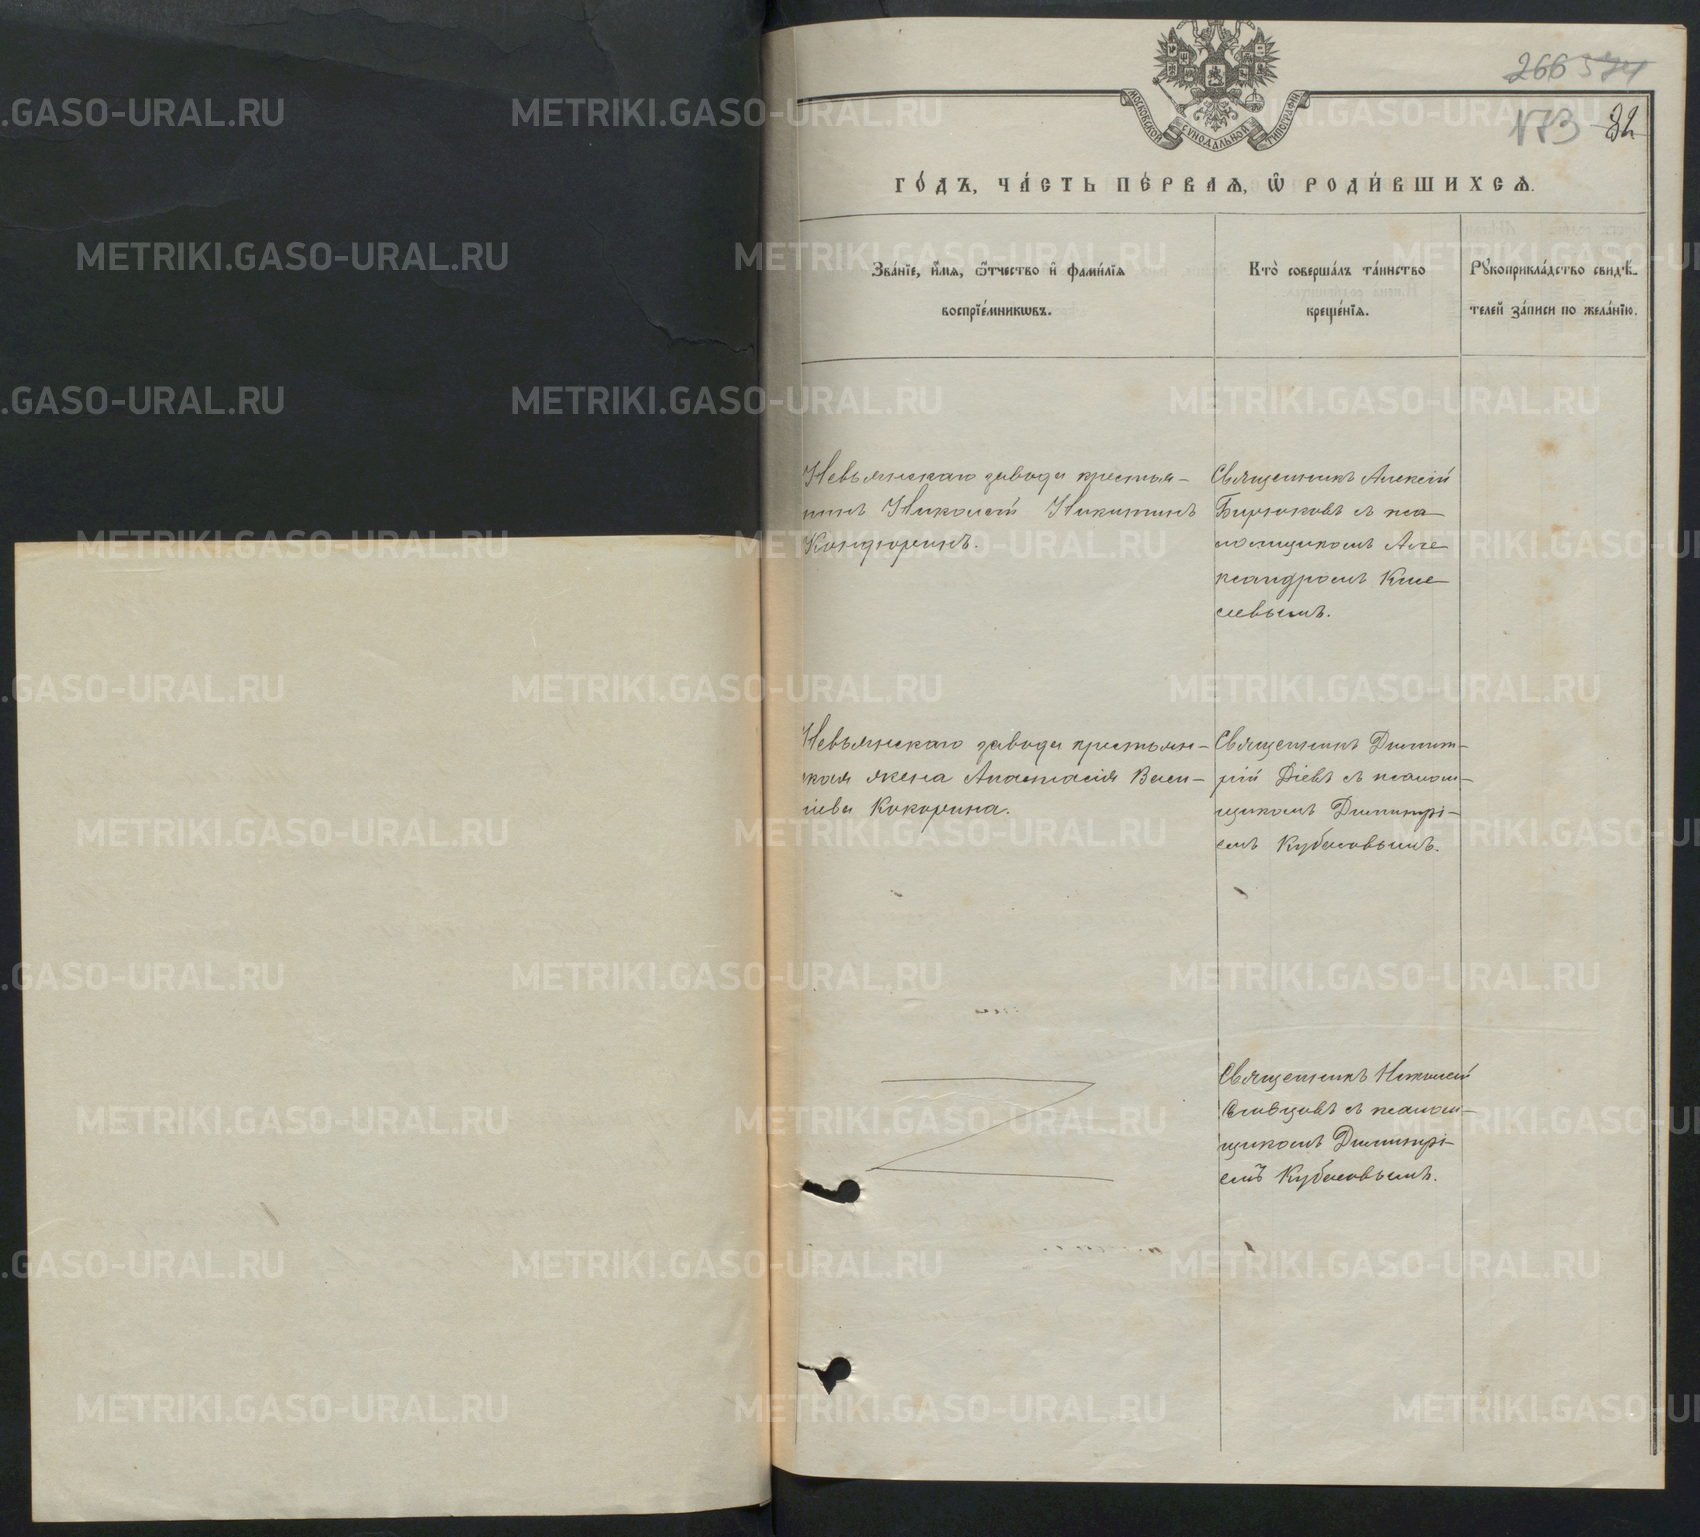 266 574
173 32
МОСКОВСКОЙ СѴНОДАЛЬНОЙ ТИПОГРАФІИ
ГО́ДЪ, ЧА́СТЬ ПЕ́РВАѦ, Ѡ҆ РОДИ́ВШИХСѦ.
Зва́нїе, и҆́мѧ, ѻ҆́тчество и҆ фами́лїѧ
воспрїе́мникѡвъ.
Кто̀ соверша́лъ та́инство
креще́нїѧ.
Рꙋкоприкла́дство свидѣ́-
телей за́писи по жела́нїю.
Невьянскаго завода крестья-
нинъ Николай Никитинъ
Кондюринъ.
Священникъ Алексій
Бирюковъ съ пса-
ломщикомъ Але-
ксандромъ Кисе-
левымъ.
Невьянскаго завода крестьян-
ская жена Анастасія Васи-
ліева Кокорина.
Священникъ Димит-
рій Діевъ съ псалом-
щикомъ Димитрі-
емъ Кубасовымъ.
Священникъ Николай
Словцовъ съ псалом-
щикомъ Димитрі-
емъ Кубасовымъ.
METRIKI.GASO-URAL.RU